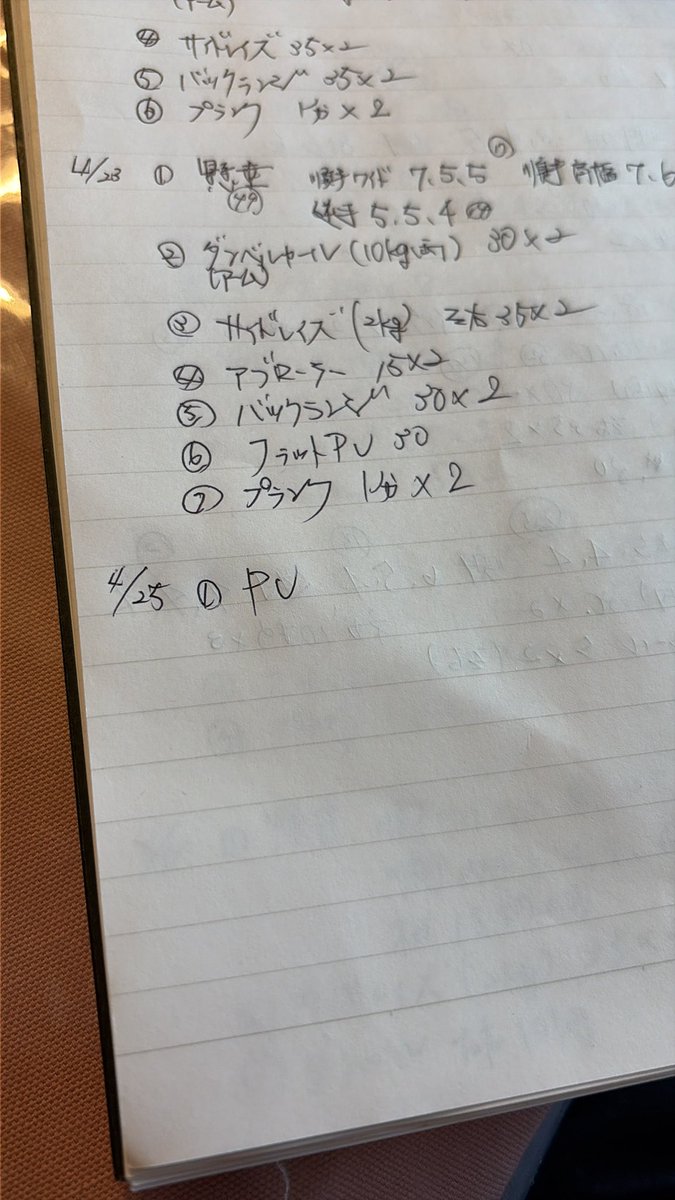 ④ サイドレイズ 35×2
⑤ バックランジ 35×2
⑥ プランク 1分×2
4/23 ① 懸垂 順手ワイド 7、5、5 順手肩幅 7、6
(49) 逆手 5、5、4
② ダンベルカール(10kg) 30×2
(アーム)
③ サイドレイズ(2kg) 左右 35×2
④ アブローラー 15×2
⑤ バックランジ 30×2
⑥ フラットPU 30
⑦ プランク 1分×2
4/25 ① PU